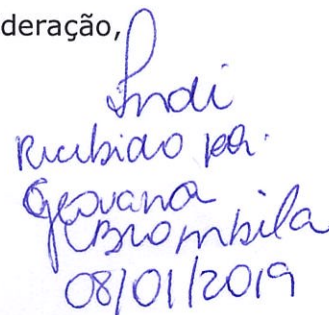 deração,
Indi
Recibido por:
Geovana
Brombila
08/01/2019